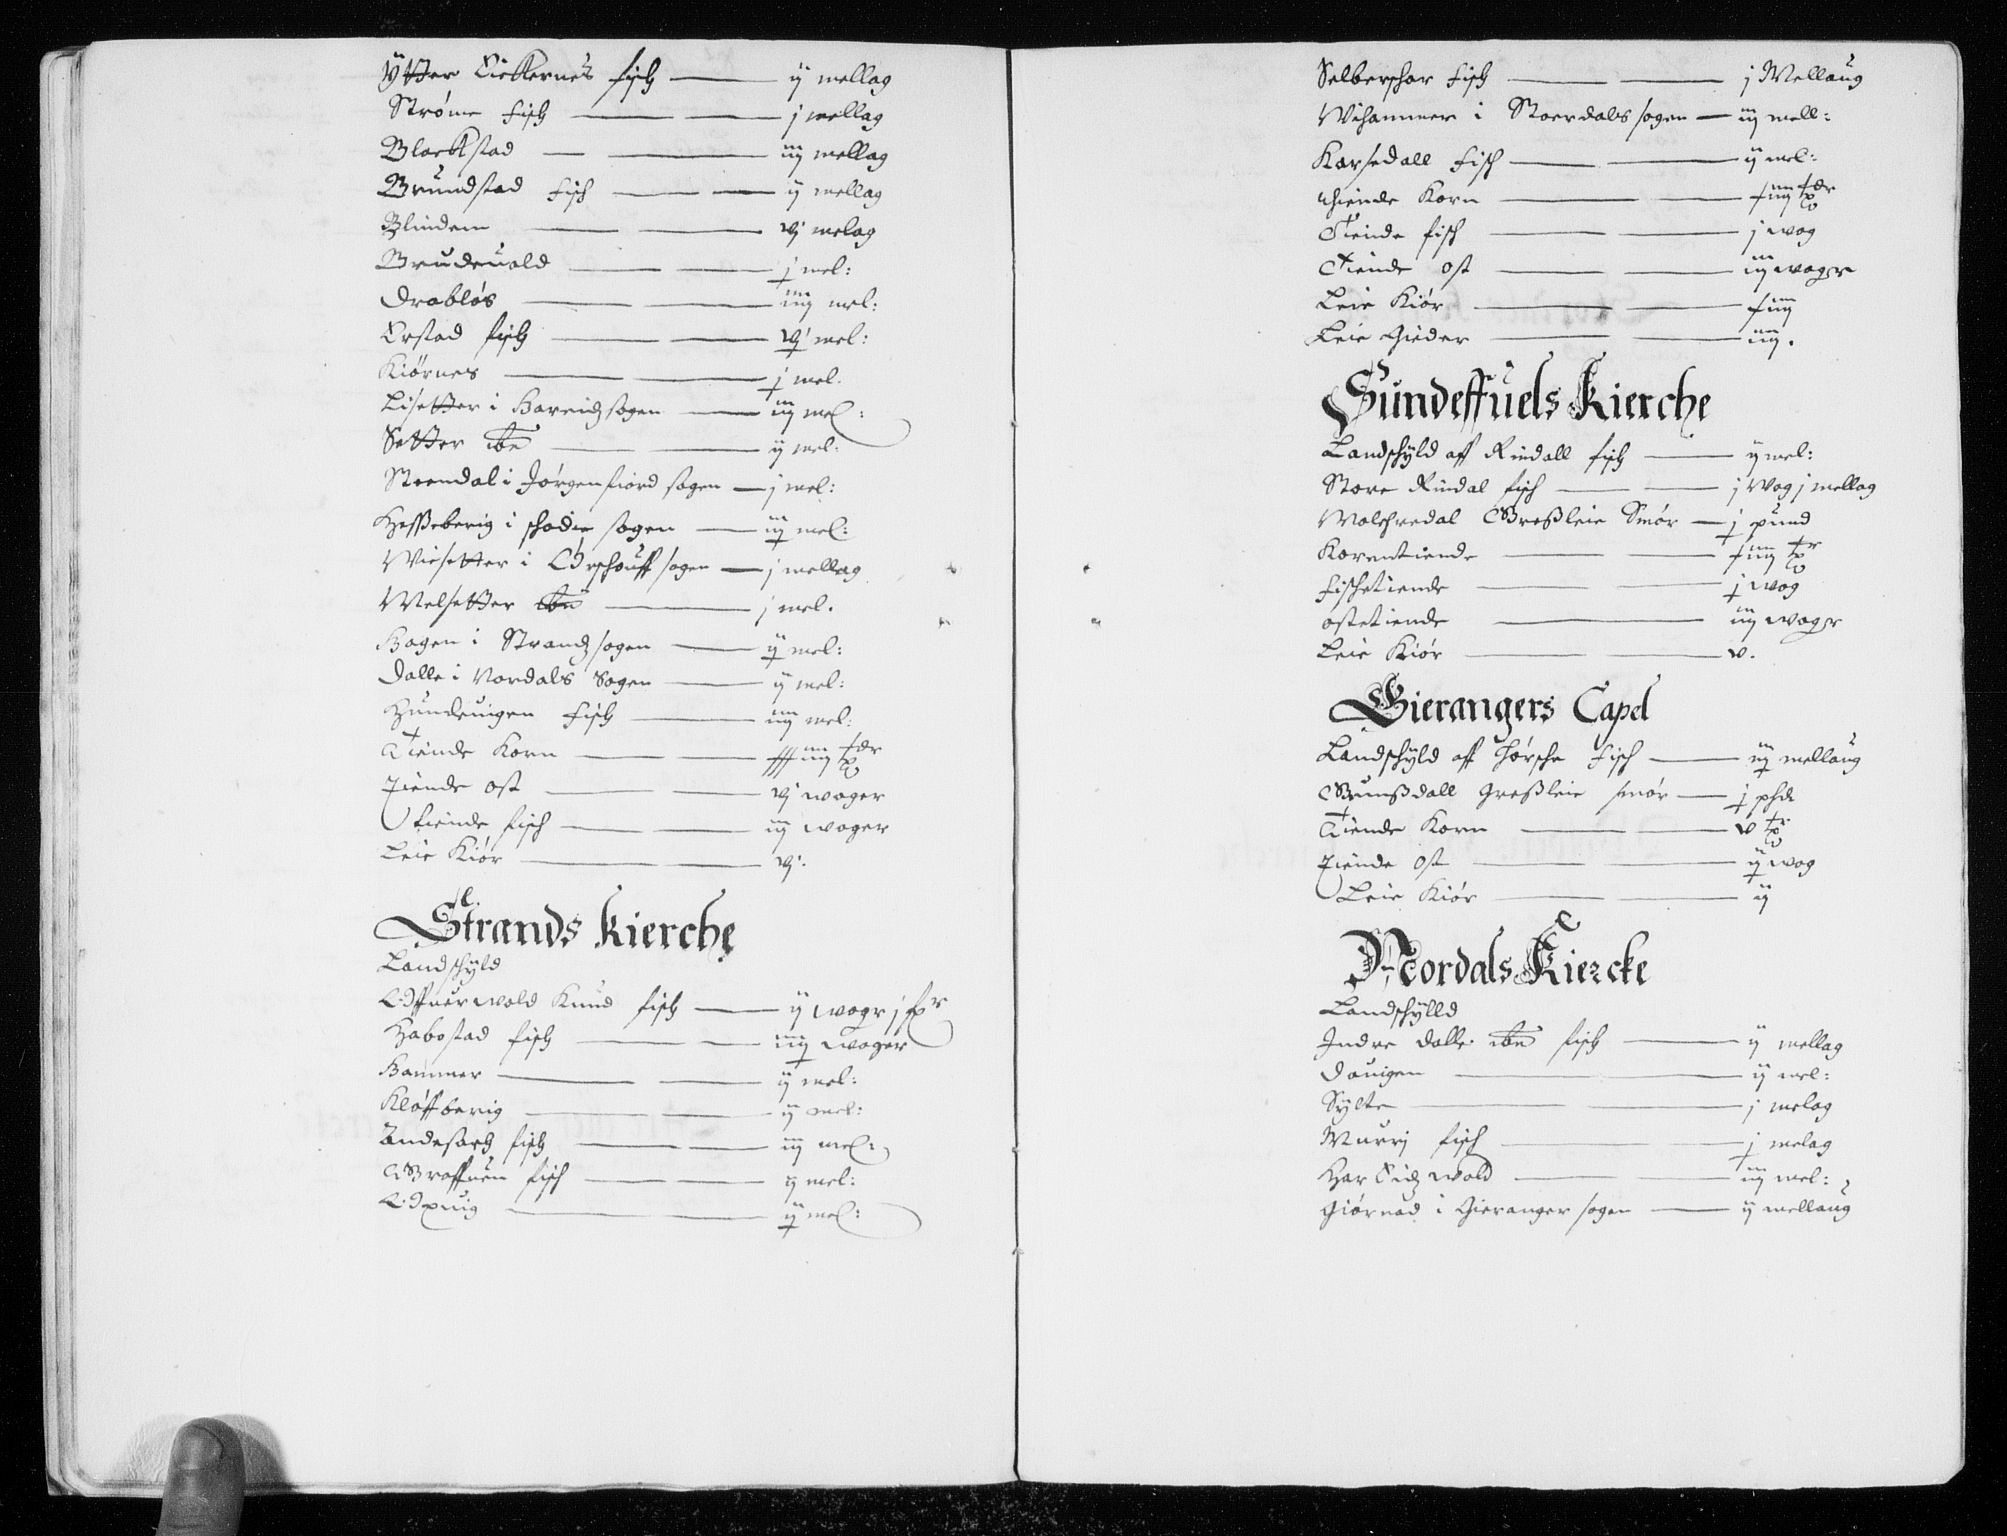 Ytter Lickernes fisch — ij mellag
Strøme fisch — j mellag
Blackstad — iij mellag
Brundstad fisch — ij mellag
Blindem — vj melag
Brudeuold — j mel:
Drabløs — iiij mel:
Erstad fisch — vj mel:
Kiørnes — j mel.
Lisetter i Hareidz sogen — iij mel:
Setter ibn — ij mel:
Steendal i Jørgenfiord sogen — j mel:
Hessseberig i schodie sogen — iij mel:
Wiesetter i Ørschouff sogen — j mellag
Welsetter ibn — j mel.
Hagen i Strandz sogen — ij mel:
Dalle i Nordals Sogen — ij mel:
Hundeuigen fisch — iiij mel:
Tiende Korn
Tiende ost — vj woger
Tiende fisch — iij woger
Leie Kiør — vj.
Strands Kierche
Landschyld
Øffuerwold Knud fisch — ij woger j
Habostad fisch — iiij woger
Hammer — ij mel:
Kløffberig — ij mel:
Andesach fisch — iij mel:
Graffuen fisch — ij mel:
Øxuig — ij mel:
Selberschar fisch — j Mellaug
Wihammer i Stordals sogen — iij mell:
Karsedall fisch — ij mel:
Thiende Korn
Tiende fisch — j wog
Tiende ost — iij woger
Leie Kiør
Leie Gieder — iiij.
Sundeffuels Kierche
Landschyld aff Rindall fisch — ij mel:
Store Rindal fisch — j Wog j mellag
Walchredal Gressleie Smør — j pund
Korentiende
Fischetiende — j wog
ostetiende — iij woger
Leie Kiør — v.
Gierangers Capel
Landschyld aff Hørsche fisch — iij mellaug
Grumssdall Gressleie smør — j
Tiende Korn — v
Tiende ost — ij wog
Leie Kiør — ij
Nordals Kiercke
Landschylld
Indre Dalle ibn fisch — ij mellag
Dauigen — ij mel:
Sylte — j melag
Murrj fisch — j melag
Har Lidz wold — iij mel:
Giørnad i Gieranger sogen — ij mellaug